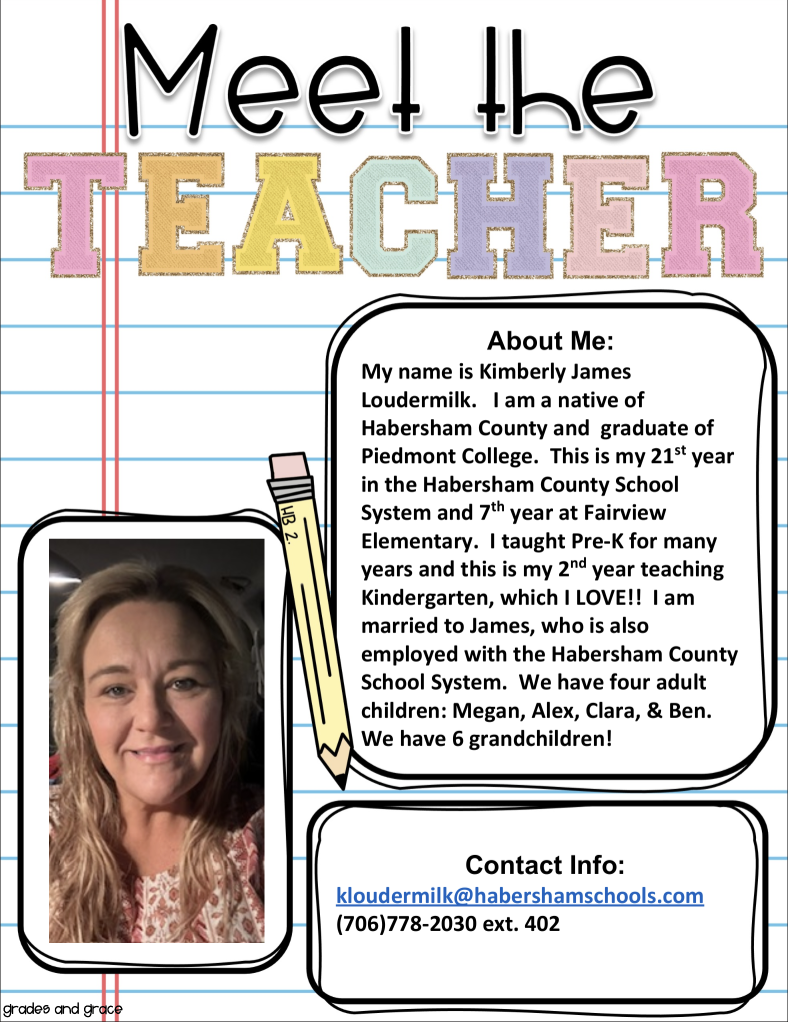 Meet the
TEACHER
About Me:
My name is Kimberly James
Loudermilk.   I am a native of
Habersham County and  graduate of
Piedmont College.  This is my 21st year
in the Habersham County School
System and 7th year at Fairview
Elementary.  I taught Pre-K for many
years and this is my 2nd year teaching
Kindergarten, which I LOVE!!  I am
married to James, who is also
employed with the Habersham County
School System.  We have four adult
children: Megan, Alex, Clara, & Ben.
We have 6 grandchildren!
HB 2.
Contact Info:
kloudermilk@habershamschools.com
(706)778-2030 ext. 402
grades and grace